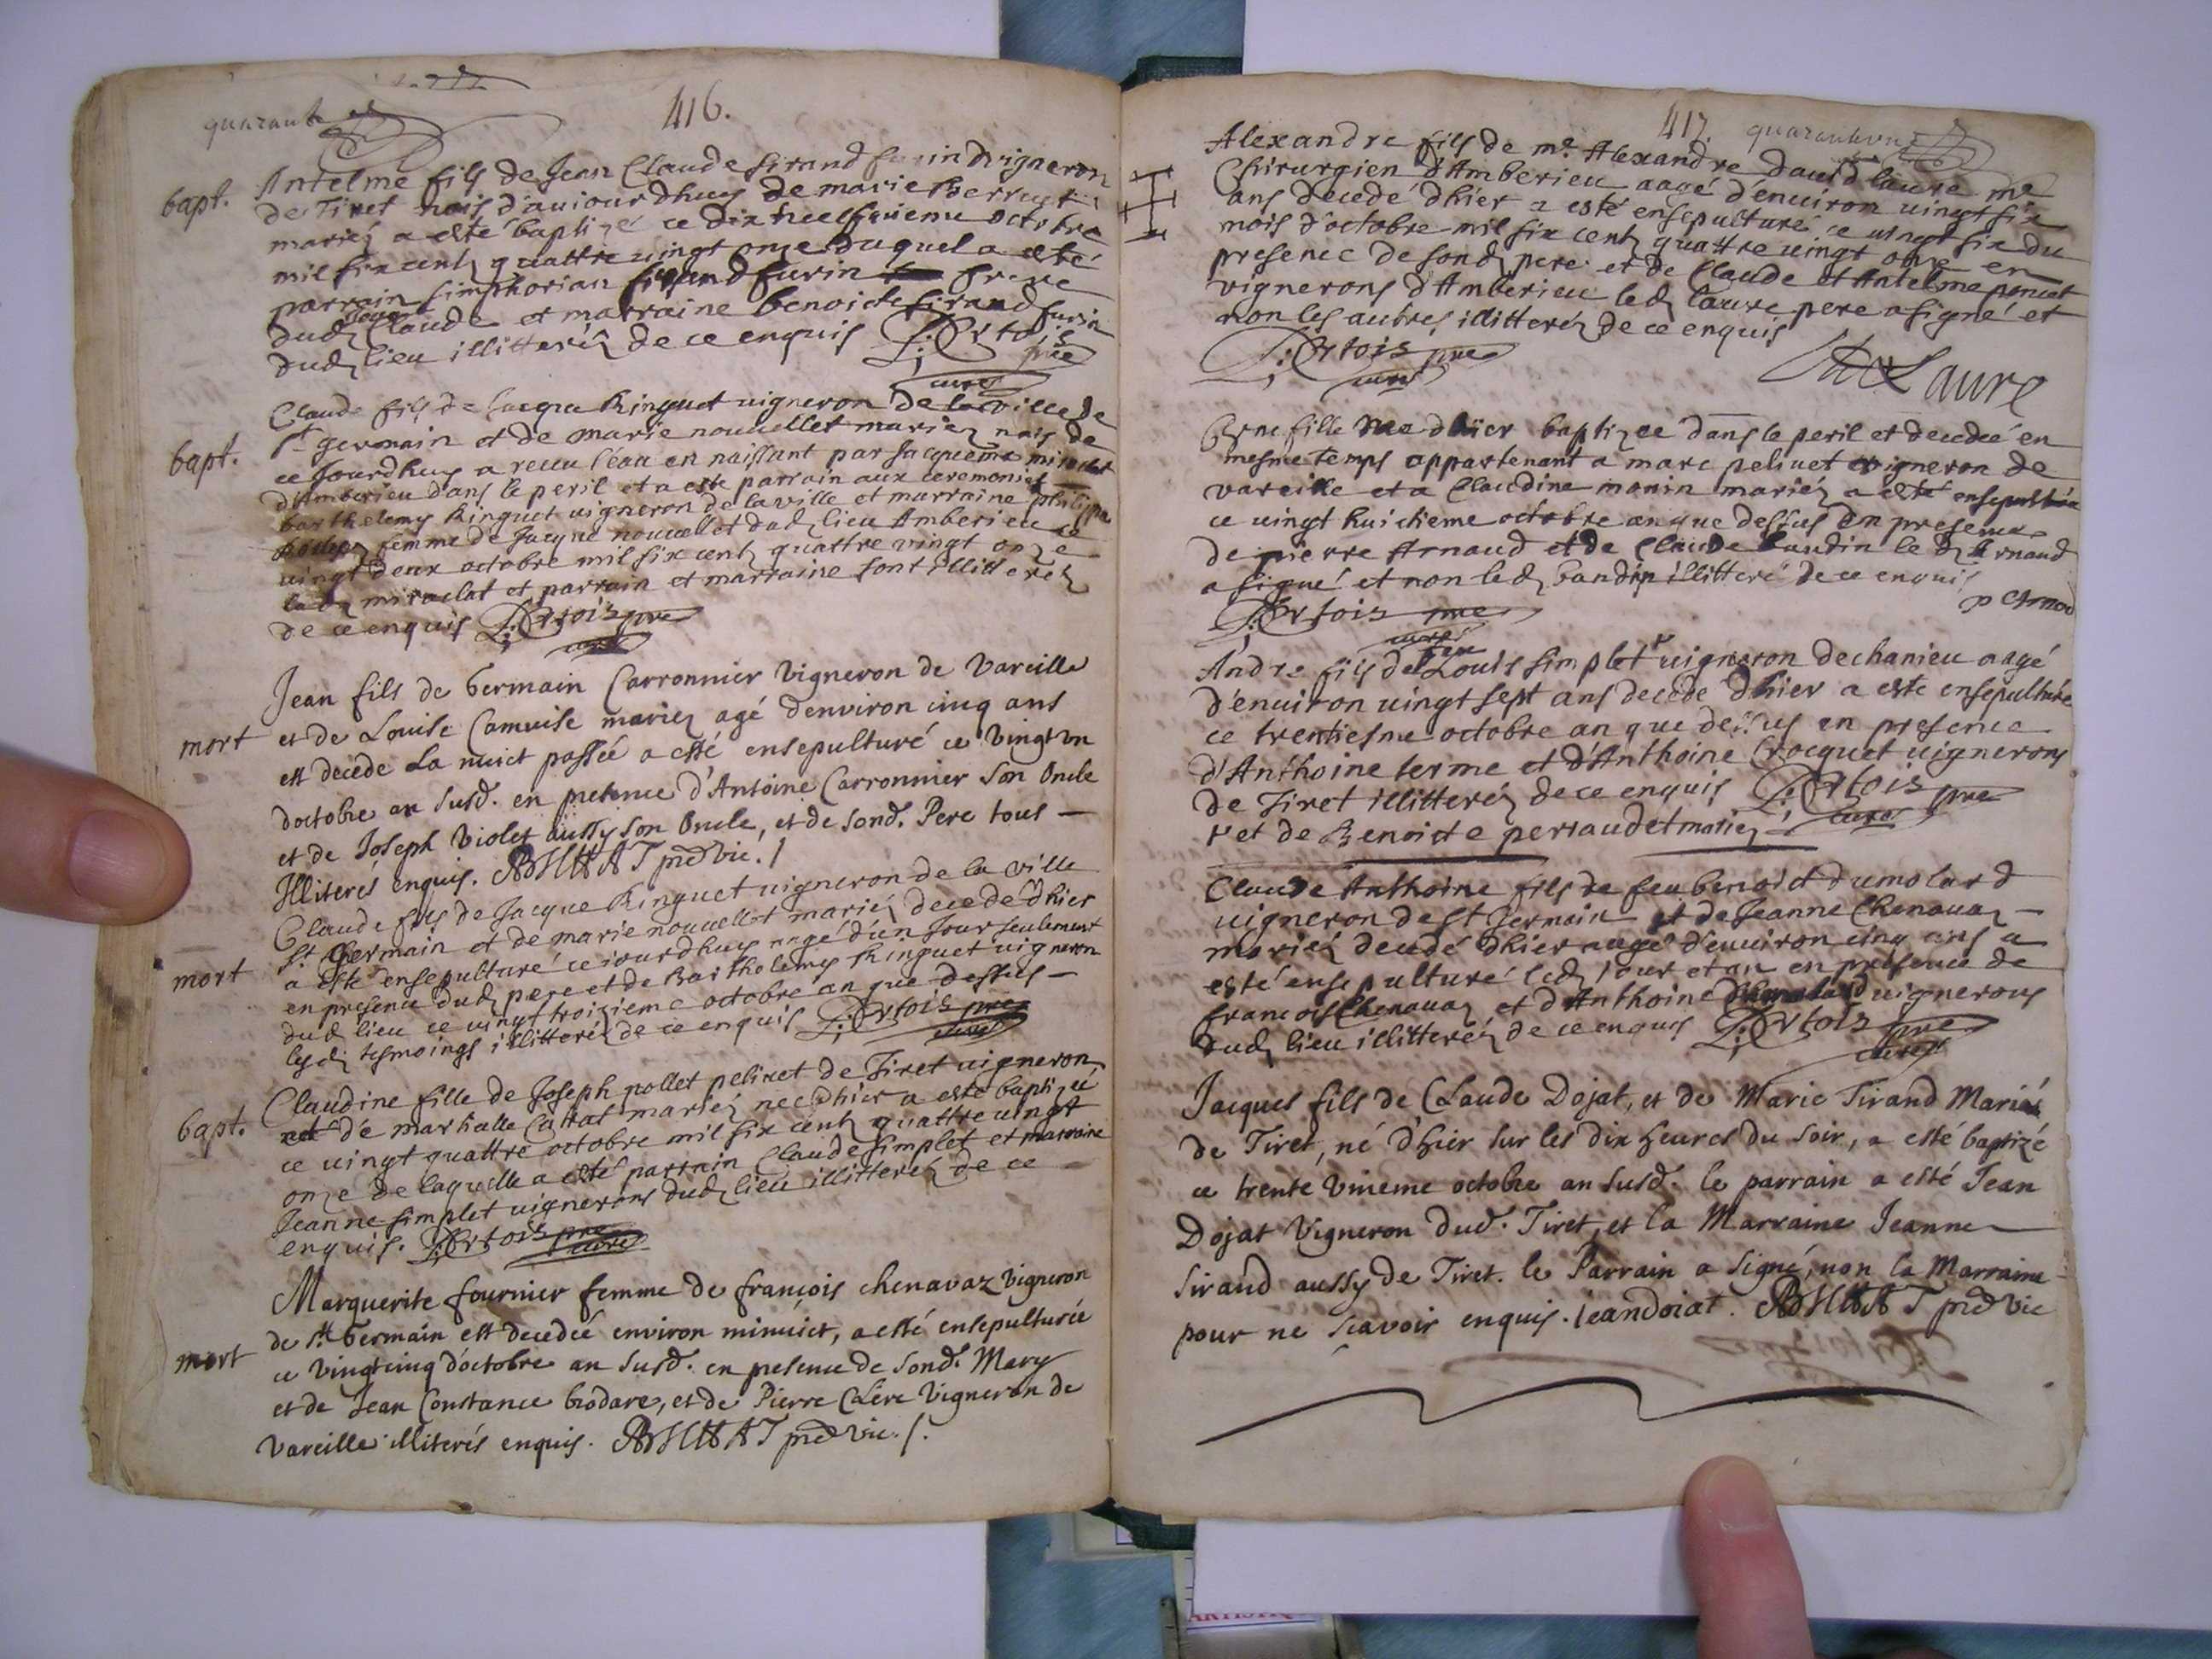 quarante
416.
bapt.
Antelme fils de Jean Claude sirand furin vigneron
de Tiret nais d'auiourdhuy de marie
mariez a esté baptizé ce dix octobre
mil six centz quattre vingt onze duquel a esté
parrain simphorian sirand furin frere
dudz Jean Claude et marraine benoicte sirand furin
dudz lieu illitteréz de ce enquis P: Ortois pre
curé
bapt.
Claude fils de Jacque Ringuet uigneron de la ville de
St germain et de marie nouuellet mariez nais de
ce Jourdhuy a receu l'eau en naissant par Jacqueme miraclat
d'Amberieu dans le peril et a esté parrain aux ceremonies
barthelemy Ringuet uigneron de la ville et marraine philippa
femme de Jacque nouuellet dudz lieu Amberieu ce
uingt deux octobre mil six centz quattre vingt onze
ladz miraclat et parrain et marraine sont illitteréz
de ce enquis P: Ortois pre
curé
mort
Jean fils de Germain Carronnier Vigneron de Vareille
et de Louise Camuise mariez agé denviron cinq ans
est decede La nuict passée a esté ensepulturé ce Vingt vn
doctobre an susd. en presence d'Antoine Carronnier son Oncle
et de Joseph Violet aussy son Oncle, et de sond. Pere tous —
Illiterés enquis. ABHHAT pre vic. /
mort
Claude fils de Jacque Ringuet uigneron de la ville
St Germain et de marie nouuellet mariéz decedé d'hier
a esté ensepulturé ce iourdhuy aagé d'un Jour seulement
en presence dudz pere et de Bartholemy Ringuet uigneron
dudz lieu ce uingt troisieme octobre an que dessus —
lesdz tesmoings illitteréz de ce enquis P: Ortois pre
curé
bapt.
Claudine fille de Joseph pollet peliuet de Tiret uigneron
et de martialle Cattat mariéz nee d'hier a esté baptizée
ce uingt quattre octobre mil six centz quattre uingt
onze de laquelle a esté parrain Claude simplet et marraine
Jeanne simplet uignerons dudz lieu illitteréz de ce
enquis. P: Ortois pre
curé
mort
Marguerite fournier femme de françois chenavaz Vigneron
de St Germain est decedée environ minuict, a esté ensepulturée
ce Vingt cinq d'octobre an susd. en presence de sond. Mary
et de Jean Constance brodare, et de Pierre Clere Vigneron de
Vareille illiterés enquis. ABHHAT pre vic. /.
417. quarante vn
Alexandre fils de me. Alexandre dauid laure me
Chirurgien d'Amberieu aagé d'enuiron uingt six
ans decedé d'hier a esté ensepulturé ce uingt six du
mois d'octobre mil six centz quattre uingt onze en
presence de sondz pere et de Claude et Antelme poncet
vignerons d'Amberieu ledz laure pere a signé et
non les autres illitteréz de ce enquis
P: Ortois pre
curé
Laure
fille nee d'hier baptizee dans le peril et decedée en
mesme temps appartenant a marc peliuet uigneron de
vareille et a Claudine monin mariéz a esté ensepulturée
ce uingt huictieme octobre an que dessus en presence
de pierre Arnaud et de Claude baudin le dz Arnaud
a signé et non ledz baudin illitteré de ce enquis
P: Ortois pre
curé
André fils de feu Louis simplet uigneron de chanieu aagé
d'enuiron uingt sept ans decedé d'hier a esté ensepulturé
ce trentiesme octobre an que dessus en presence
d'Anthoine terme et d'Anthoine Crocquet uignerons
de Tiret illitteréz de ce enquis P: Ortois pre
et de Benoicte perraudet mariez curé
Claude Anthoine fils de feu benoict dumolard
uigneron de St Jermain et de Jeanne Chenauaz —
mariéz decedé d'hier aagé d'enuiron cinq ans a
esté ensepulturé lesdz iour et an en presence de
francois Chenauaz et d'Anthoine dumolard uignerons
dudz lieu illitteréz de ce enquis P: Ortois pre
curé
Jacques fils de Claude Dojat, et de Marie Sirand Mariés
de Tiret, né d'hier sur les dix heures du soir, a esté baptizé
ce trente vnieme octobre an susd. le parrain a esté Jean
Dojat Vigneron dud. Tiret, et la Marraine Jeanne
Sirand aussy de Tiret. le Parrain a signé, non la Marraine
pour ne scavoir enquis. Jean doiat. ABHHAT pre vic